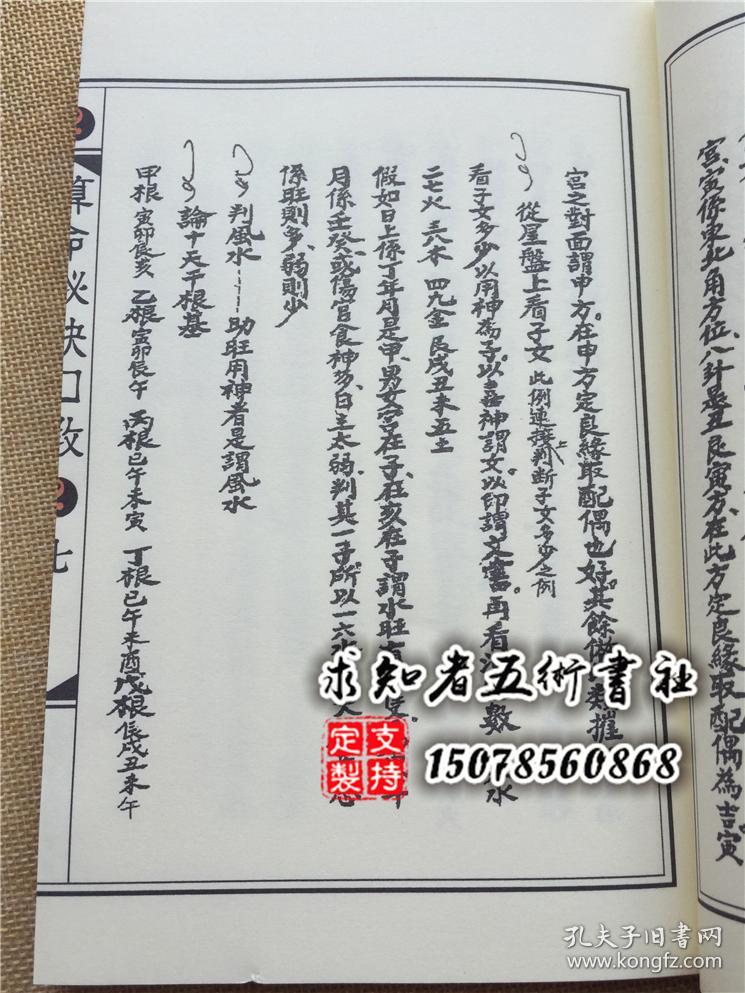 宮寅係東北角方位八計是丑艮寅方在此方定良緣取配偶為吉寅
宮之對面謂申方。在申方定良緣取配偶也好。其餘
從星盤上看子女 此例連接上判斷子女多少之例
看子女多少以用神為子。以喜神謂女以印謂文書。再看 數 水
二七火 三八木 四九金 艮戌丑未五土
假如日上係丁年月是甲、男女宮在子、在亥在子謂水旺
月係壬癸、或傷官食神多、日主太弱、判其一子所以一六水
係旺則多、弱則少
判風水——助旺用神者是謂風水
論十天干根基
甲根 寅卯辰亥 乙根 寅卯辰午 丙根 巳午未寅 丁根 巳午未酉 戊根 辰戌丑未午
算命秘訣口教
七
求知者五術書社
支持定製
15078560868
孔夫子旧書网
www.kongfz.com